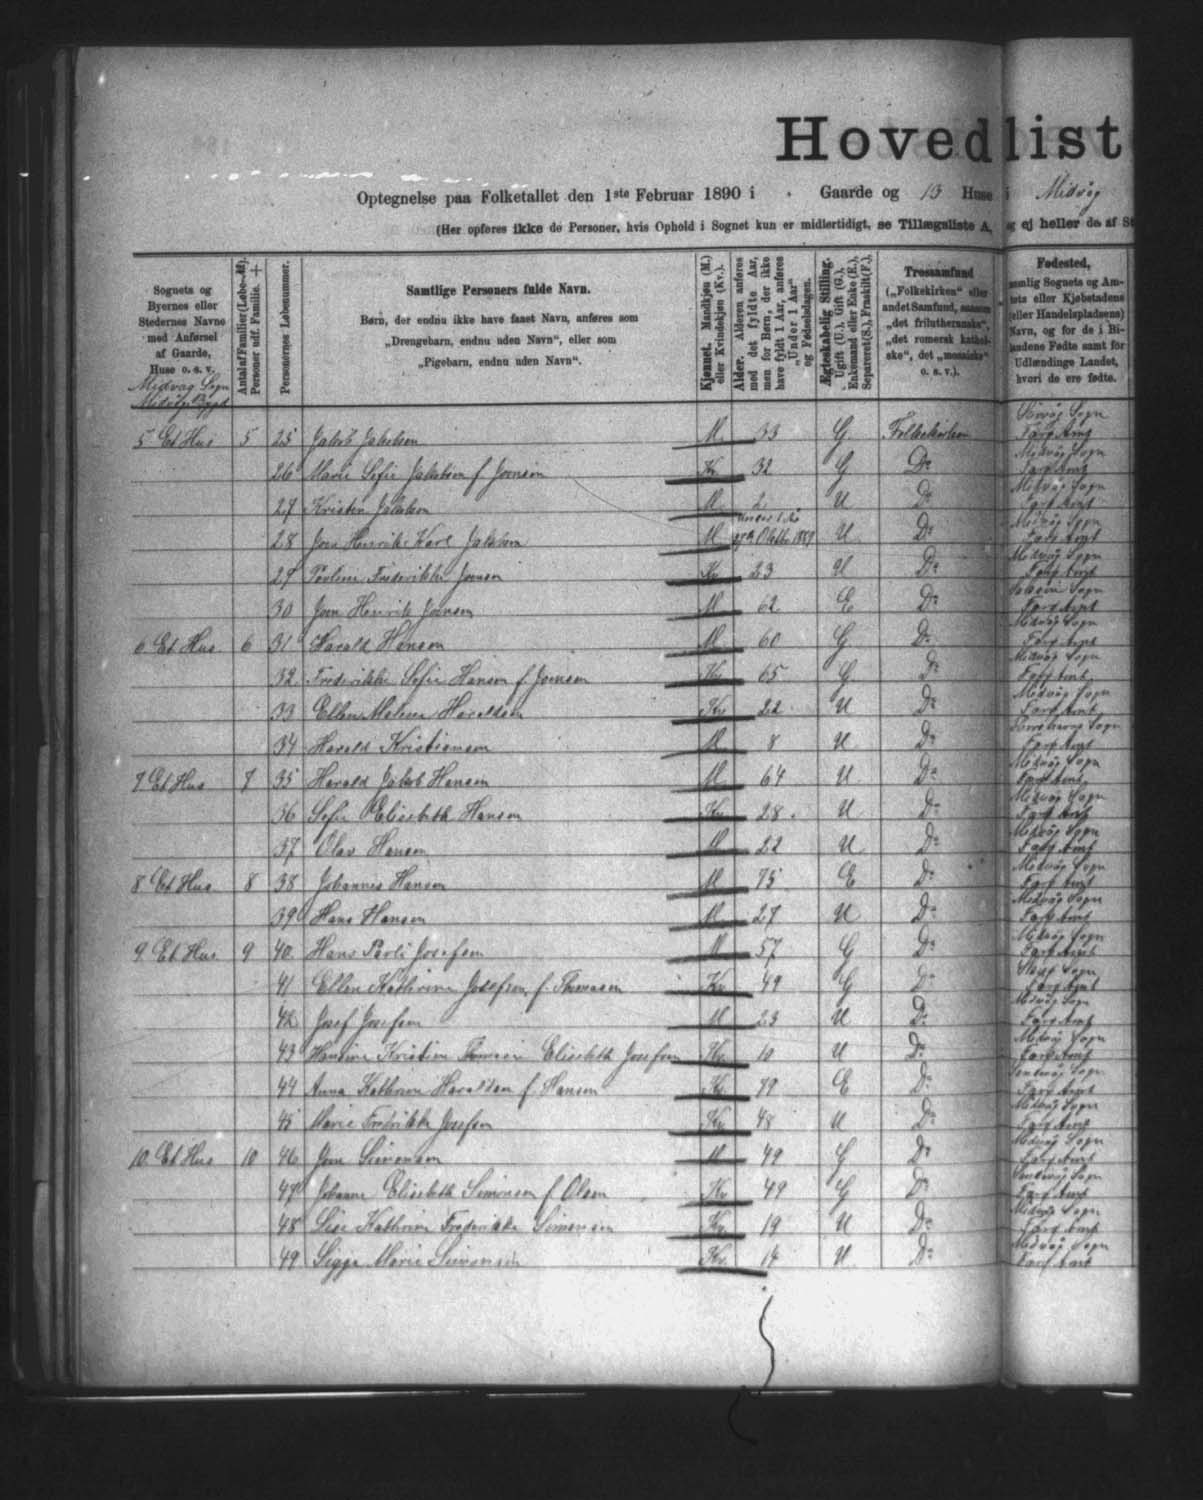 Hovedlist
Optegnelse paa Folketallet den 1ste Februar 1890 i Gaarde og 13 Huse i Midvåg
(Her opføres ikke de Personer, hvis Ophold i Sognet kun er midlertidigt, se Tillægsliste A, og ej heller de af St
Sognets og Byernes eller Stedernes Navne med Anførsel af Gaarde, Huse o. s. v.
Antal af Familier (Løbe-Nr). Personer udf. Familie. +
Personernes Løbenummer.
Samtlige Personers fulde Navn.
Børn, der endnu ikke have faaet Navn, anføres som
„Drengebarn, endnu uden Navn“, eller som
„Pigebarn, endnu uden Navn“.
Kjønnet. Mandkjøn (M.) eller Kvindekjøn (Kv.).
Alder. Alderen anføres med det fyldte Aar, men for Børn, der ikke have fyldt 1 Aar, anføres „Under 1 Aar“ og Fødselsdagen.
Ægteskabelig Stilling. Ugift (U.), Gift (G.), Enkemand eller Enke (E.), Separeret (S.), Fraskilt (F.).
Trossamfund („Folkekirken“ eller andet Samfund, saasom „det frilutheranske“, „det romersk katholske“, det „mosaiske“ o. s. v.).
Fødested,
nemlig Sognets og Amtets eller Kjøbstadens (eller Handelspladsens) Navn, og for de i Bilandene Fødte samt for Udlændinge Landet, hvori de ere fødte.
Midvag Sogn
Midvåg Bygd
5 Et Hus 5 25 Jakob Jakobsen M 33 G Folkekirken Sørvåg Sogn Færø Amt
26 Marie Sofie Jakobsen f. Joensen Kv 32 G Do Midvåg Sogn Færø Amt
27 Kristen Jakobsen M 2 U Do Midvåg Sogn Færø Amt
28 Joen Henrik Karl Jakobsen M Under 1 Aar Oktbr 1889 U Do Midvåg Sogn Færø Amt
29 Poline Frederikke Joensen Kv 23 U Do Midvåg Sogn Færø Amt
30 Joen Henrik Joensen M 62 E Do Sogn Færø Amt
6 Et Hus 6 31 Harald Hansen M 60 G Do Midvåg Sogn Færø Amt
32 Frederikke Sofie Hansen f. Joensen Kv 65 G Do Midvåg Sogn Færø Amt
33 Ellen Malene Haraldsen Kv 22 U Do Midvåg Sogn Færø Amt
34 Harald Kristiansen M 8 U Do Sogn Færø Amt
7 Et Hus 7 35 Harald Jakob Hansen M 64 U Do Midvåg Sogn Færø Amt
36 Sofie Elisebeth Hansen Kv 28 U Do Midvåg Sogn Færø Amt
37 Olav Hansen M 22 U Do Midvåg Sogn Færø Amt
8 Et Hus 8 38 Johannes Hansen M 75 E Do Midvåg Sogn Færø Amt
39 Hans Hansen M 27 U Do Midvåg Sogn Færø Amt
9 Et Hus 9 40 Hans Pauli Josefsen M 57 G Do Midvåg Sogn Færø Amt
41 Ellen Kathrine Josefsen, f. Thomasen Kv 49 G Do Sogn Færø Amt
42 Josef Josefsen M 23 U Do Midvåg Sogn Færø Amt
43 Hansine Kristine Elisebeth Josefsen Kv 10 U Do Midvåg Sogn Færø Amt
44 Anna Kathrine Haraldsen f. Hansen Kv 79 E Do Sandvåg Sogn Færø Amt
45 Marie Fredrikke Josefsen Kv 48 U Do Midvåg Sogn Færø Amt
10 Et Hus 10 46 Joen Simonsen M 49 G Do Midvåg Sogn Færø Amt
47 Johanne Elisebeth Simonsen f. Olsen Kv 49 G Do Sandvåg Sogn Færø Amt
48 Lise Kathrine Frederikke Simonsen Kv 19 U Do Midvåg Sogn Færø Amt
49 Sigga Marie Simonsen Kv 14 U Do Midvåg Sogn Færø Amt